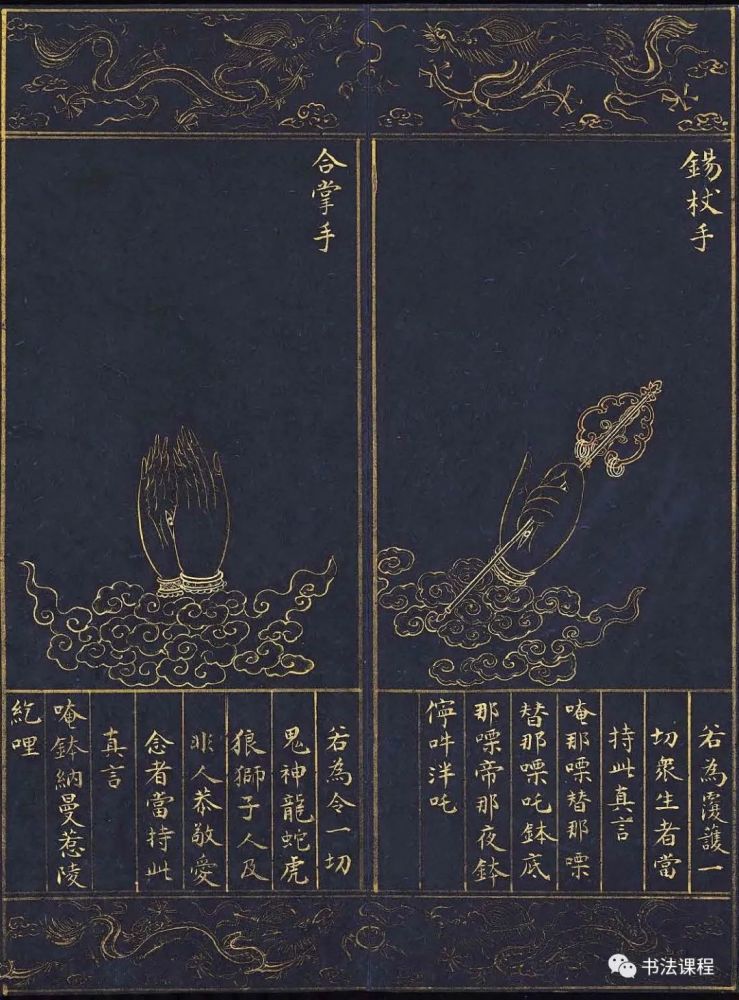 錫杖手
若為覆護一
切衆生者當
持此真言
唵那㗚替那㗚
替那㗚吒鉢底
那㗚帝那夜鉢
儜吽泮吒
合掌手
若為令一切
鬼神龍蛇虎
狼獅子人及
非人恭敬愛
念者當持此
真言
唵鉢納曼惹陵
紇哩
书法课程